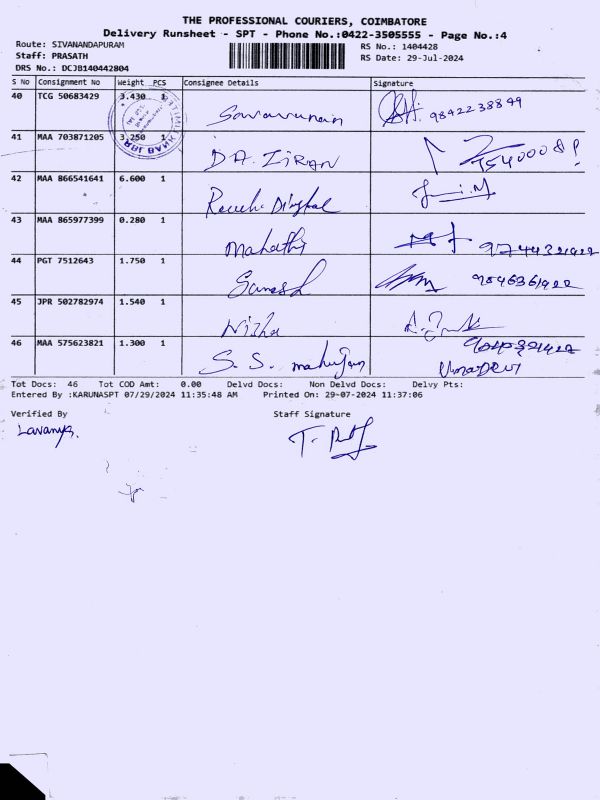 THE PROFESSIONAL COURIERS, COIMBATORE
Delivery Runsheet - SPT - Phone No.:0422-3505555 - Page No.:4
Route: SIVANANDAPURAM RS No.: 1404428
Staff: PRASATH RS Date: 29-Jul-2024
DRS No.: DCJB140442804
S No Consignment No Weight PCS Consignee Details Signature
40 TCG 50683429 3.430 1 9842238849
41 MAA 703871205 3.250 1
RBL BANK
42 MAA 866541641 6.600 1
43 MAA 865977399 0.280 1 Mahathi
44 PGT 7512643 1.750 1 Ganesh
45 JPR 502782974 1.540 1 Nisha
46 MAA 575623821 1.300 1 S. S. Umadevi
Tot Docs: 46 Tot COD Amt: 0.00 Delvd Docs: Non Delvd Docs: Delvy Pts:
Entered By :KARUNASPT 07/29/2024 11:35:48 AM Printed On: 29-07-2024 11:37:06
Verified By Staff Signature
Lavanya.